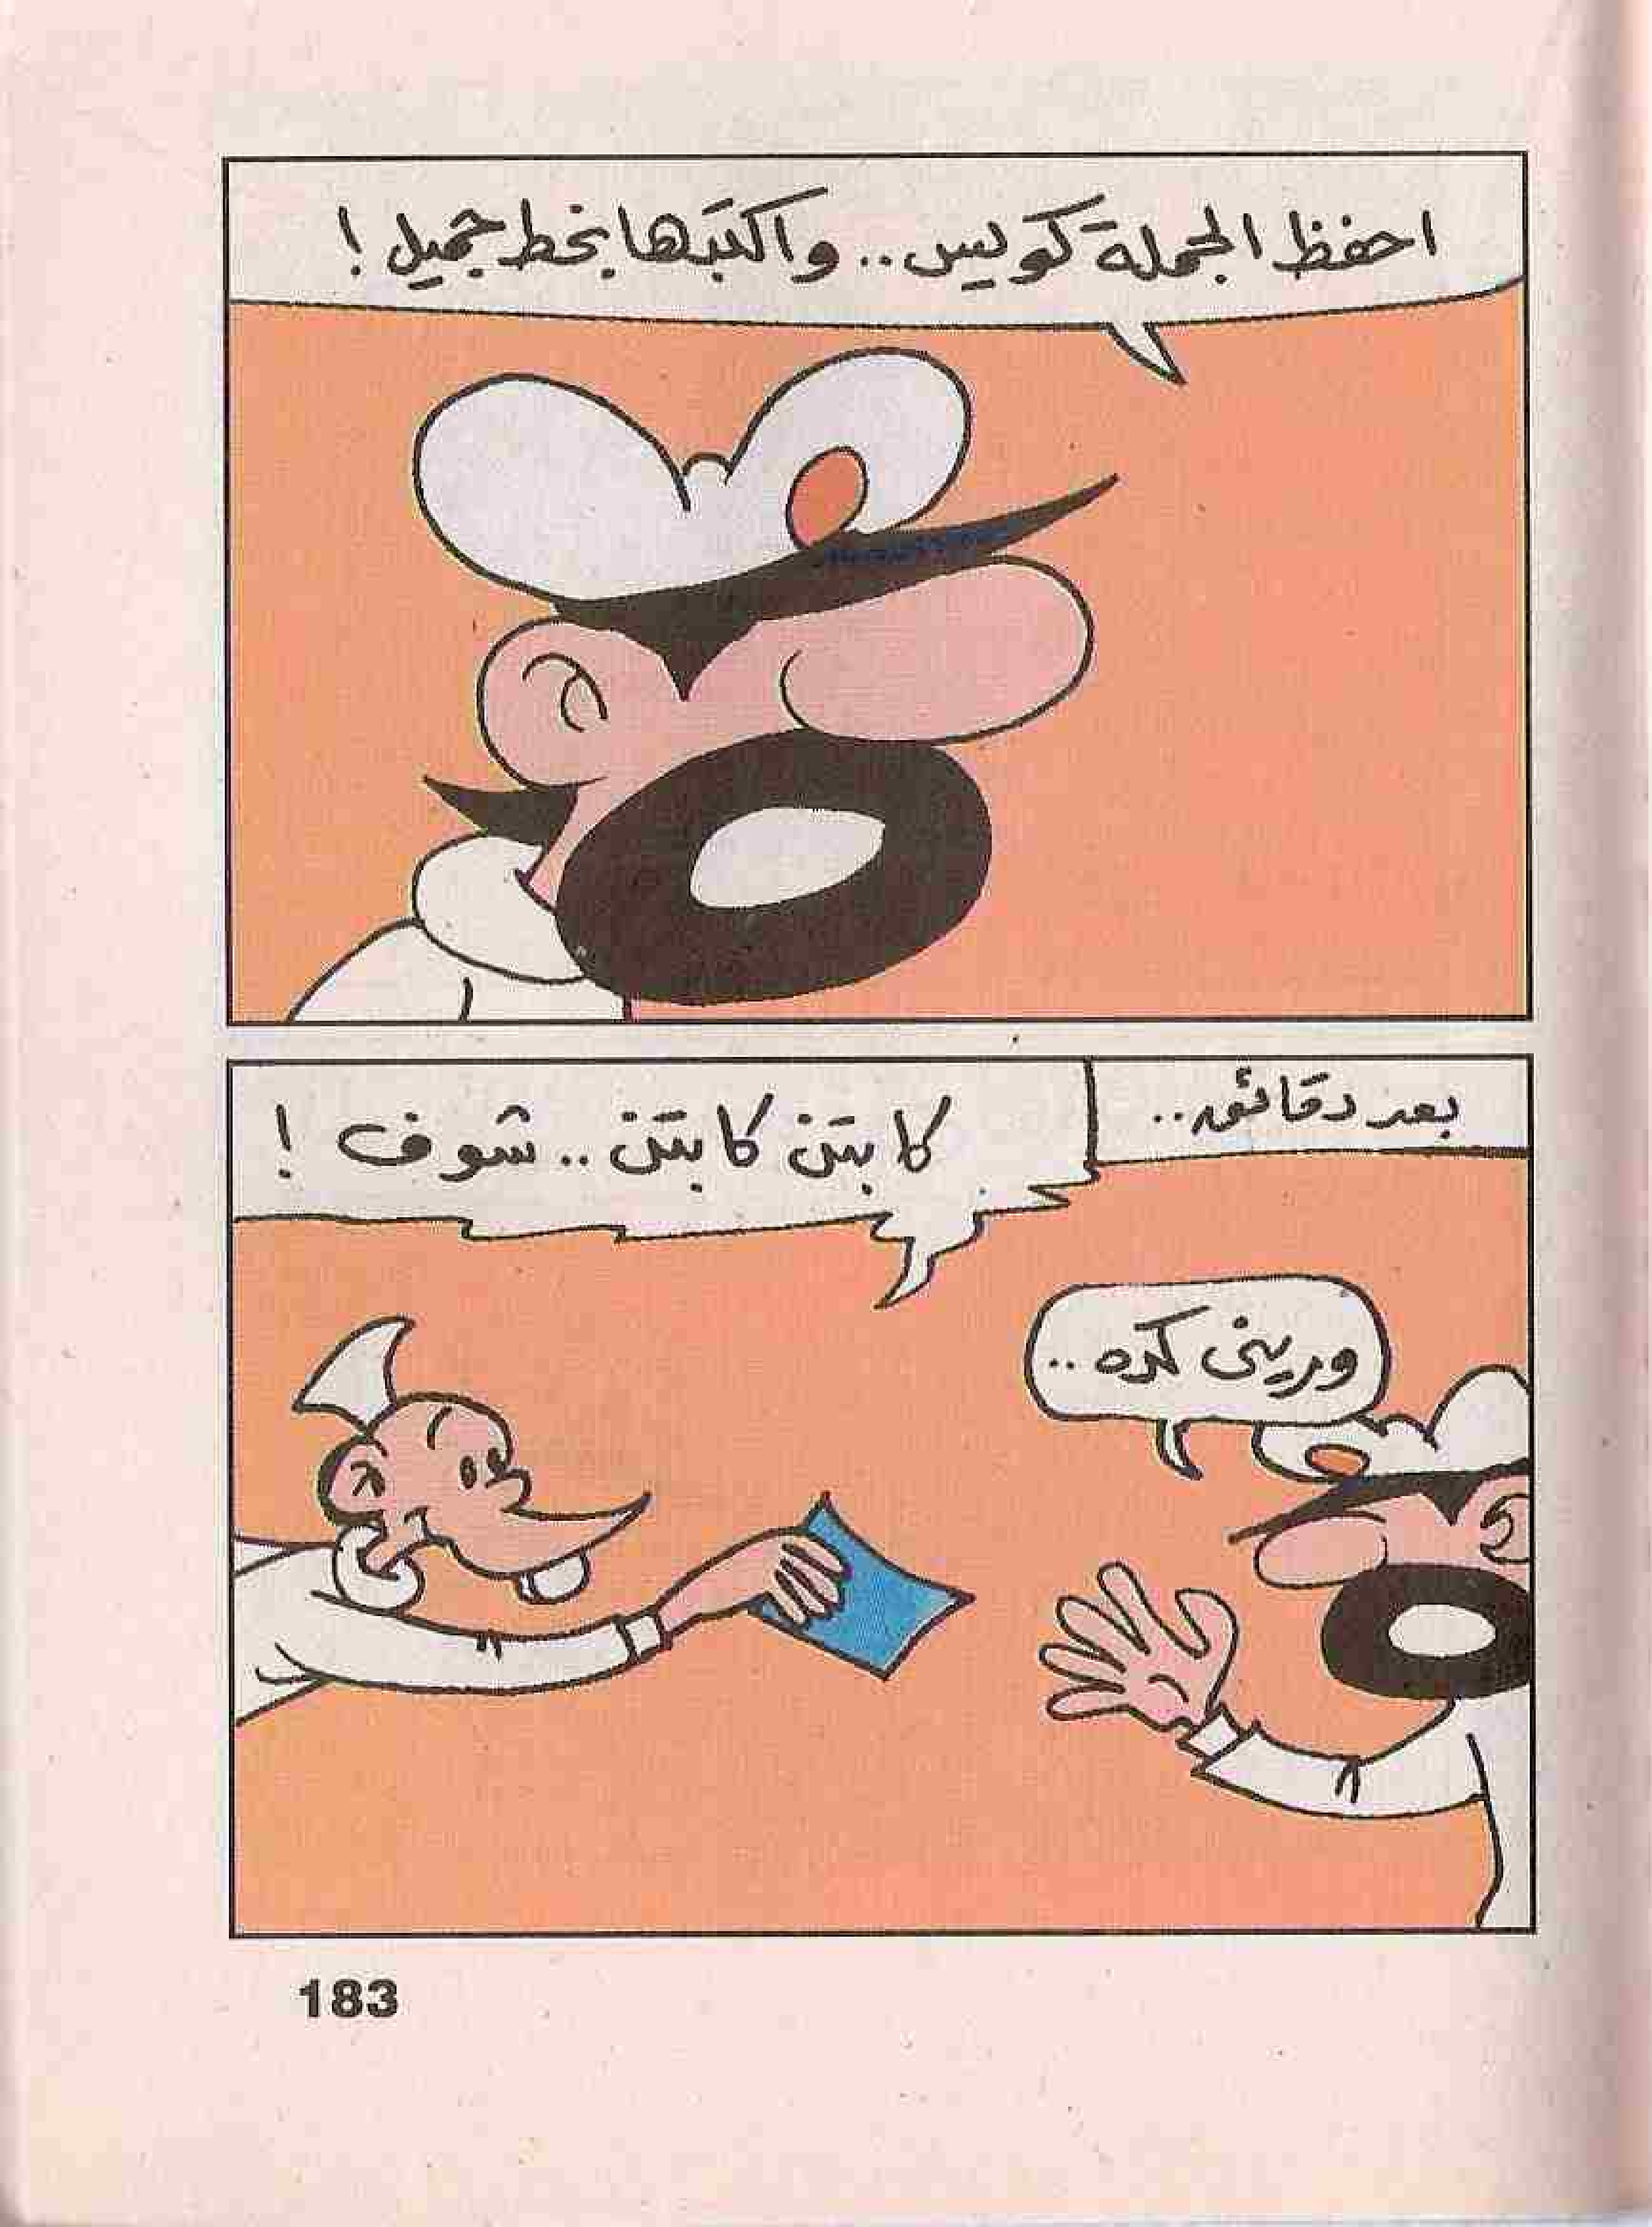 احفظ الجملة كويس.. واكتبها بخط جميل!
بعد دقائق..
كابتن كابتن.. شوف!
وريني كده..
183